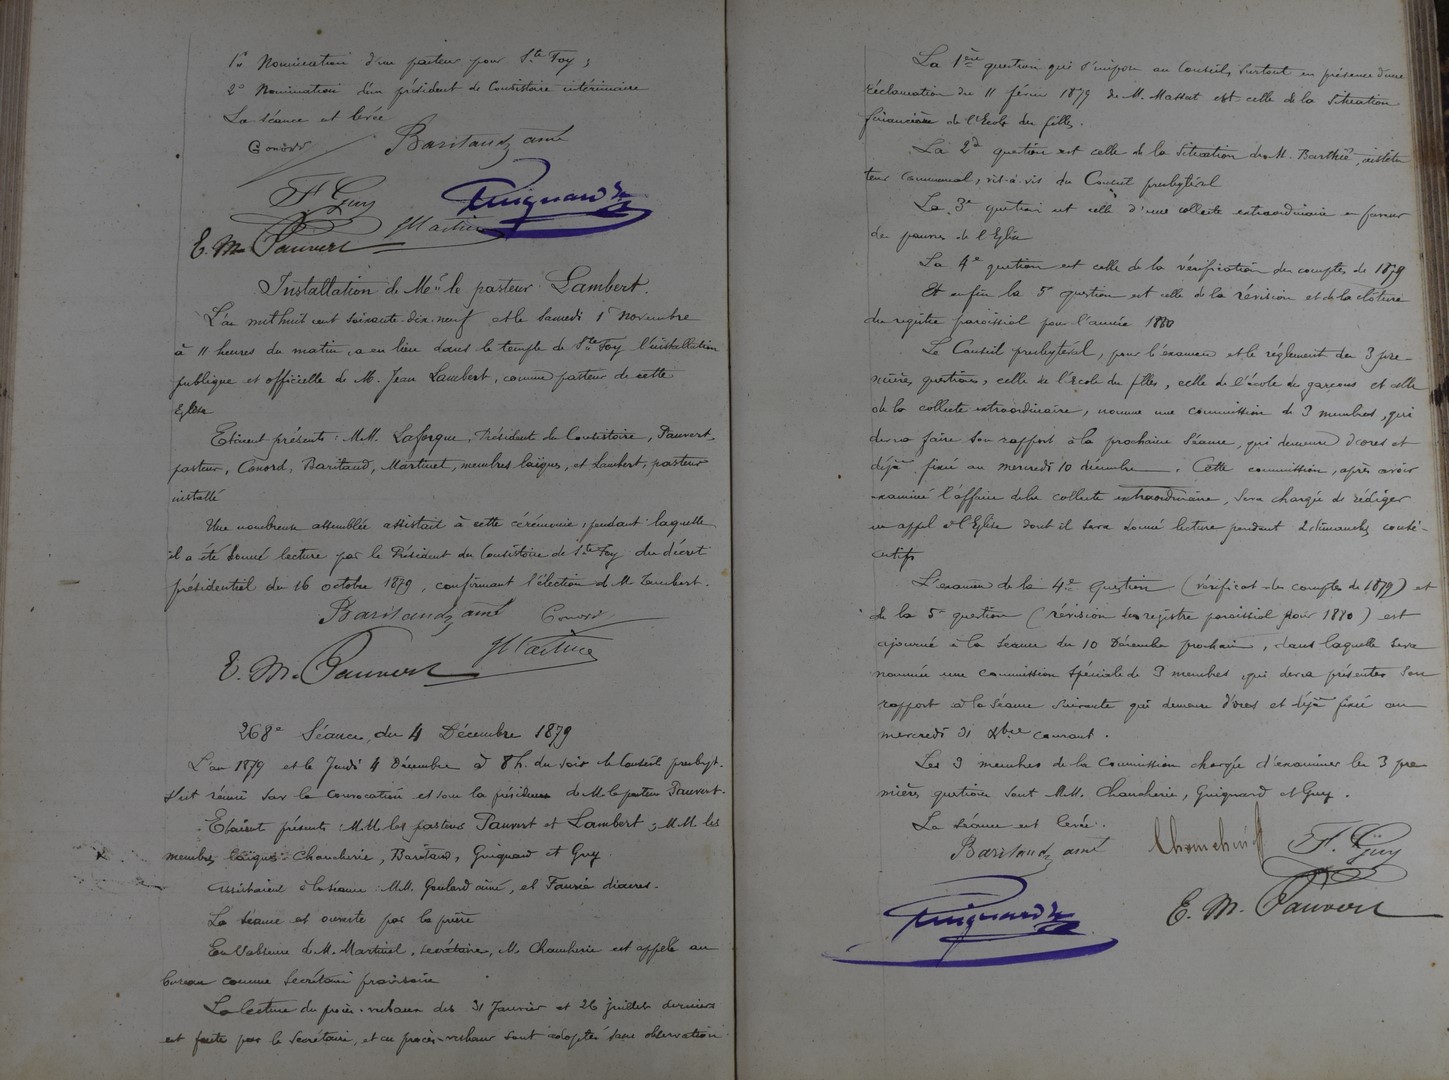 1º Nomination d'un pasteur pour Ste Foy ;
2º Nomination d'un président de Consistoire intérimaire
La séance est levée
Conord
Baritaud aîné
F. Guy
Guignard
Martinel
E. M. Pauvert
Installation de Mr le pasteur Lambert.
L'an mil huit cent soixante-dix-neuf et le Samedi 1r Novembre
à 11 heures du matin, a eu lieu dans le temple de Ste Foy l'installation
publique et officielle de M. Jean Lambert, comme pasteur de cette
Eglise
Etaient présents : M.M. Laforgue, Président du Consistoire, Pauvert,
pasteur, Conord, Baritaud, Martinel, membres laïques, et Lambert, pasteur
installé
Une nombreuse assemblée assistait à cette cérémonie, pendant laquelle
il a été donné lecture par le Président du Consistoire de Ste Foy du décret
présidentiel du 16 octobre 1879, confirmant l'élection de M. Lambert.
Baritaud aîné
Conord
Martinel
E. M. Pauvert
268e Séance, du 4 Décembre 1879
L'an 1879 et le Jeudi 4 Décembre à 8 h. du soir le Conseil presbyt.
s'est réuni sur la convocation et sous la présidence de M. le pasteur Pauvert.
Etaient présents : M.M. les pasteurs Pauvert et Lambert ; M.M. les
membres laïques Chaucherie, Baritaud, Guignard et Guy
Assistaient à la séance M.M. Goulard aîné, et Faurie diacres.
La séance est ouverte par la prière
En l'absence de M. Martinel, secrétaire, M. Chaucherie est appelé au
bureau comme Secrétaire provisoire
La lecture du procès-verbaux des 31 Janvier et 26 juillet derniers
est faite par le Secrétaire, et ces procès-verbaux sont adoptés sans observation
La 1ère question qui s'impose au Conseil, surtout en présence d'une
réclamation du 11 février 1879 de M. Massat est celle de la situation
financière de l'Ecole des filles.
La 2d question est celle de la situation de M. Barthé, institu
teur communal, vis-à-vis du Conseil presbytéral
La 3e question est celle d'une collecte extraordinaire en faveur
des pauvres de l'Eglise
La 4e question est celle de la vérification des comptes de 1879
Et enfin la 5e question est celle de la révision et de la clôture
du registre paroissial pour l'année 1880
Le Conseil presbytéral, pour l'examen et le règlement des 3 pre-
mières questions, celle de l'école des filles, celle de l'école des garçons et celle
de la collecte extraordinaire, nomme une commission de 3 membres, qui
devra faire son rapport à la prochaine séance, qui demeure d'ores et
déjà fixée au mercredi 10 décembre. Cette commission, après avoir
examiné l'affaire de la collecte extraordinaire, sera chargée de rédiger
un appel à l'Eglise dont il sera donné lecture pendant 2 dimanches consé-
cutifs
L'examen de la 4e question (vérificat. des comptes de 1879) et
de la 5e question (révision des registre paroissial pour 1880) est
ajourné à la séance du 10 Décembre prochain, dans laquelle sera
nommée une commission spéciale de 3 membres qui devra présenter son
rapport à la séance suivante qui demeure d'ores et déjà fixée au
mercredi 31 Xbre courant.
Les 3 membres de la Commission chargée d'examiner les 3 pre
mières questions sont M.M. Chaucherie, Guignard et Guy.
La séance est levée.
Baritaud aîné
Chaucherie
F. Guy
Guignard
E. M. Pauvert